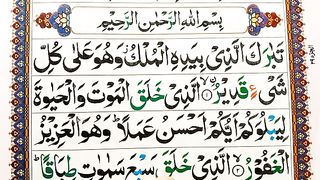 بِسْمِ اللهِ الرَّحْمٰنِ الرَّحِيْمِ
تَبٰرَكَ الَّذِيْ بِيَدِهِ الْمُلْكُ وَهُوَ عَلٰى كُلِّ
شَيْءٍ قَدِيْرُ ۙ ۱ الَّذِيْ خَلَقَ الْمَوْتَ وَالْحَيٰوةَ
لِيَبْلُوَكُمْ اَيُّكُمْ اَحْسَنُ عَمَلًا ؕ وَهُوَ الْعَزِيْزُ
الْغَفُوْرُ ۙ ۲ الَّذِيْ خَلَقَ سَبْعَ سَمٰوٰتٍ طِبَاقًا ؕ